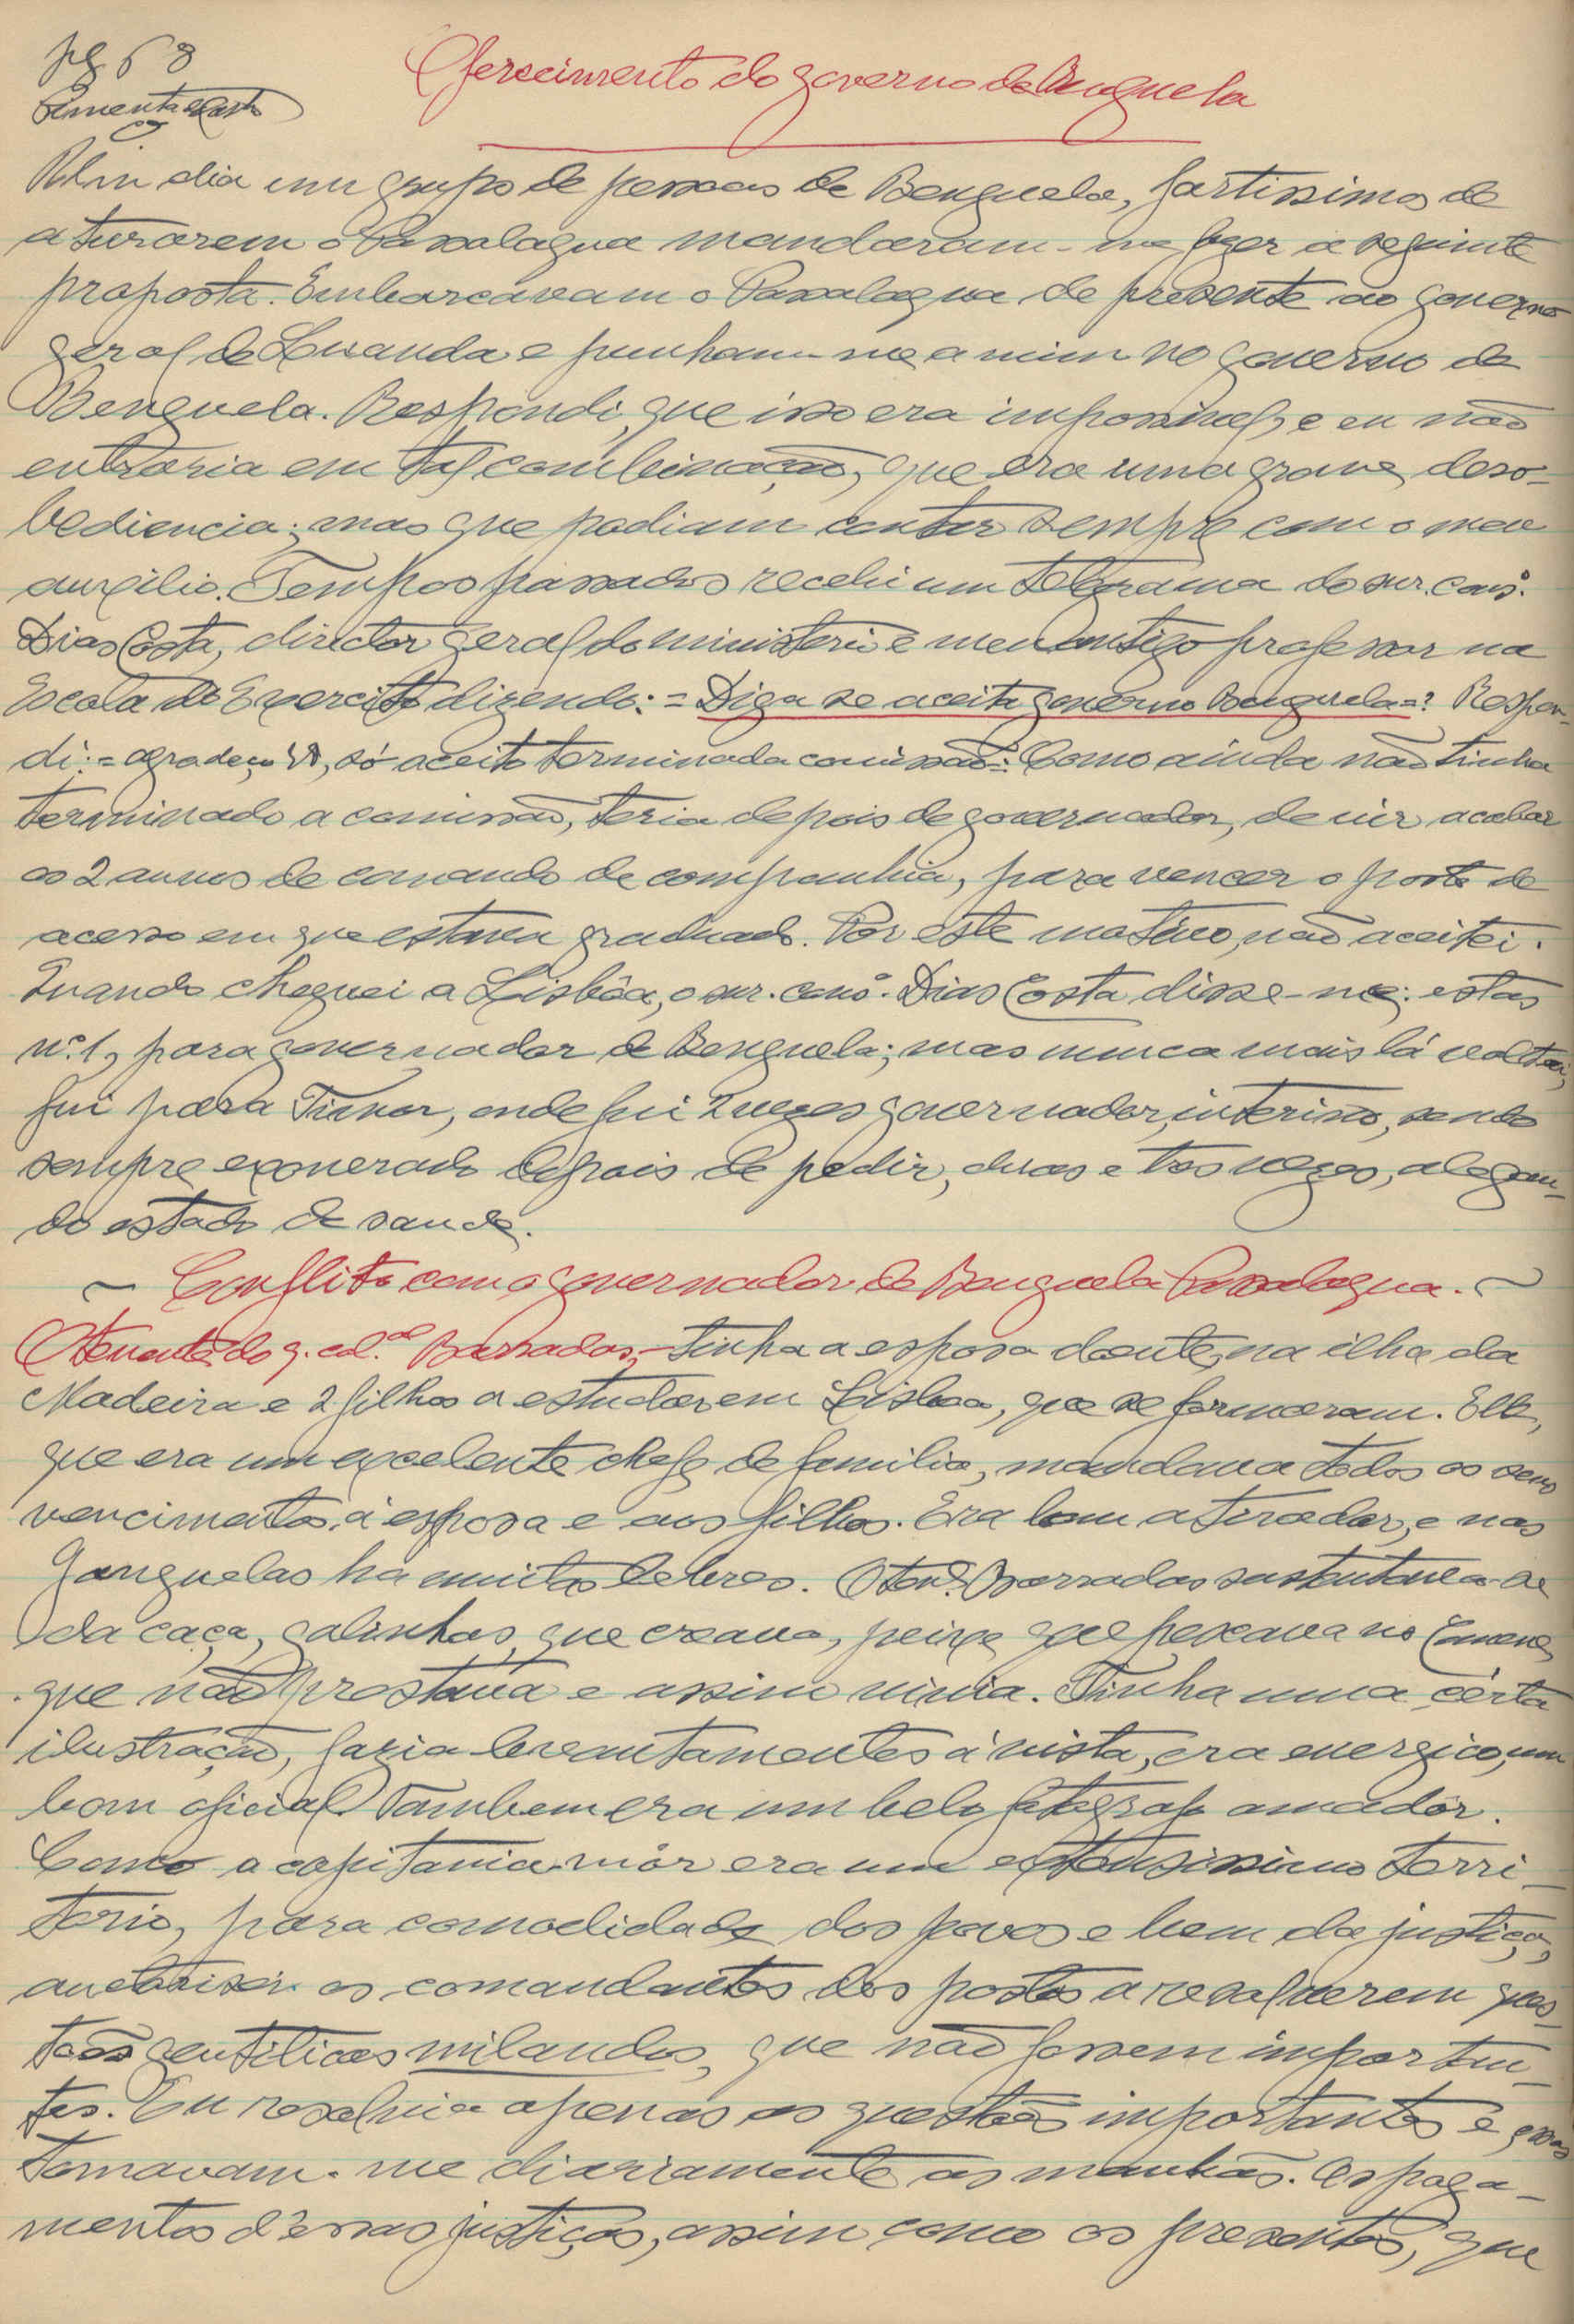 pg 68
Oferecimento do governo de Benguela
Pimenta e Castro
Um dia um grupo de pessoas de Benguela, fartissimos de
aturarem o Passalagua mandaram-me fazer a seguinte
proposta. Embarcavam o Passalagua de presente ao governo
geral de Luanda e punham-me a mim no governo de
Benguela. Respondi, que isso era impossivel, e eu não
entraria em tal combinação, que era uma grave deso-
bediencia; mas que podiam contar sempre com o meu
auxilio. Tempos passados recebi um telegrama do snr. cons.º
Dias Costa, director geral do ministerio e meu antigo professor na
Escola do Exercito dizendo: = Diga se aceita governo Benguela =? Respon-
di: = agradeço V., só aceito terminada comissão =: Como ainda não tinha
terminado a comissão, teria depois de governador, de vir acabar
os 2 annos de comando de companhia, para vencer o posto de
acesso em que estava graduado. Por este motivo, não aceitei.
Quando cheguei a Lisbôa, o snr. cons.º Dias Costa disse-me: estas
n.º 1, para governador de Benguela; mas nunca mais lá voltei;
fui para Timor, onde fui 2 vezes governador, interino, sendo
sempre exonerado depois de pedir, duas e tres vezes, alegan-
do estado de saude.
~ Conflito com o governador de Benguela Passalagua. ~
O tenente do q. col.al Barradas, - tinha a esposa doente, na ilha da
Madeira e 2 filhos a estudar em Lisboa, que se formaram. Elle,
que era um excelente chefe de familia, mandava todos os seus
vencimentos á esposa e aos filhos. Era bom atirador, e nas
Ganguelas ha muitas lebres. O ten.e Barradas sustentava-se
da caça, galinhas, que creava, peixe que pescava no
que não prestava e assim vivia. Tinha uma cérta
ilustração, fazia levantamentos á vista, era energico, um
bom oficial. Tambem era um belo fotografo amadôr.
Como a capitania-mór era um extensissimo terri-
torio, para comodidade dos povos e bem da justiça,
auctorisei os comandantes dos postos a resolverem ques-
tões gentilicas milandos, que não fossem importan-
tes. Eu resolvia apenas as questões importantes e essas
tomavam-me diariamente as manhãs. Os paga-
mentos d'essas justiças, assim como os presentes, que